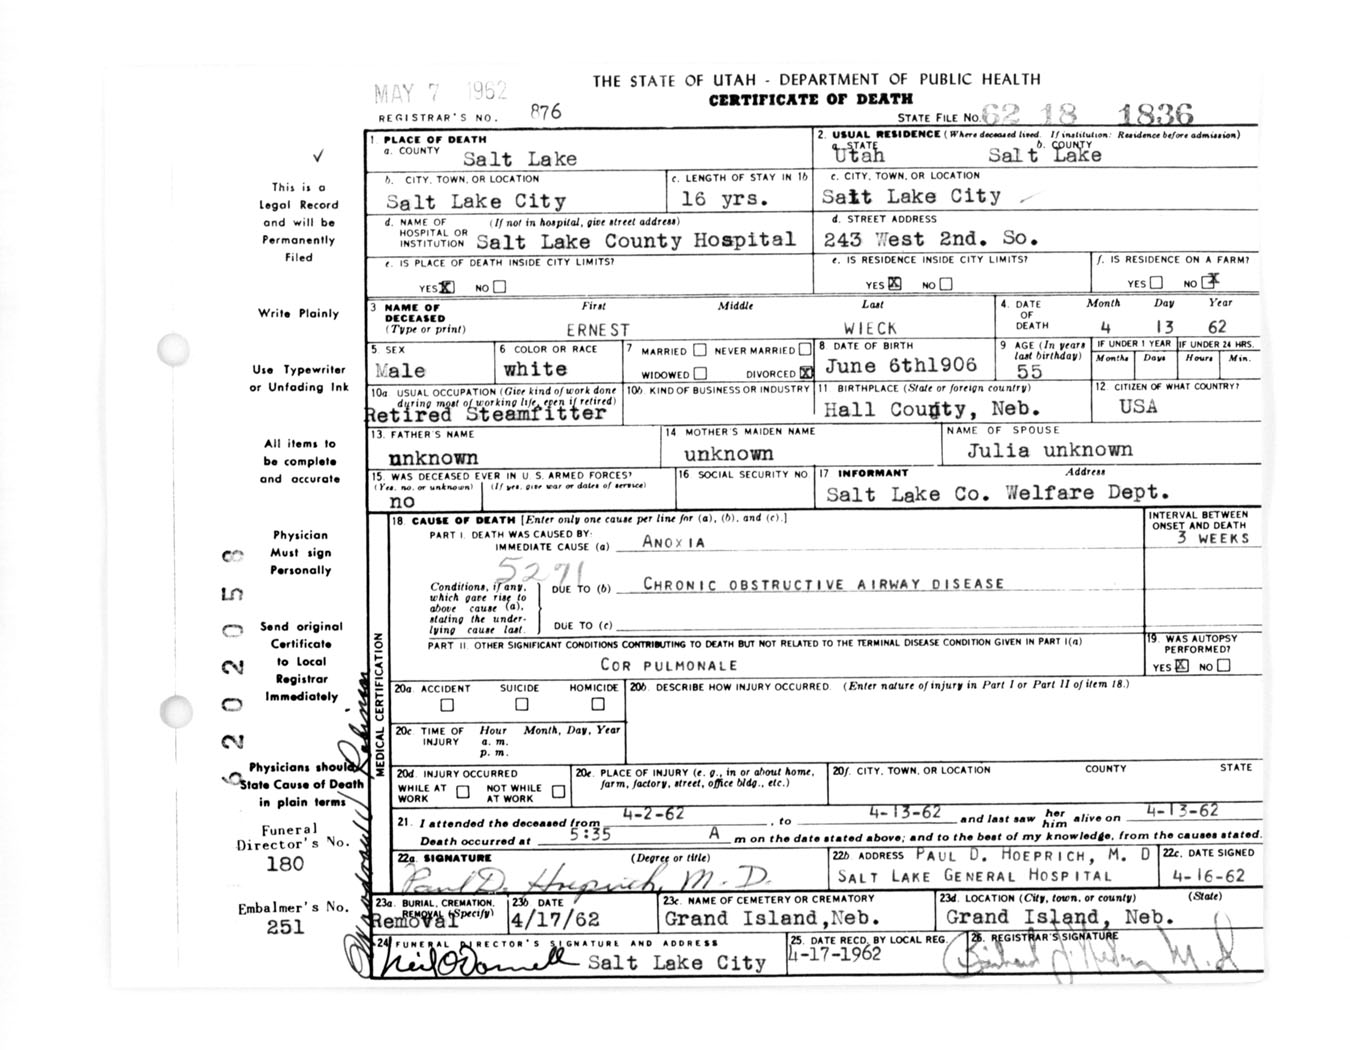 THE STATE OF UTAH - DEPARTMENT OF PUBLIC HEALTH
MAY 7 1962
CERTIFICATE OF DEATH
REGISTRAR'S NO. 876
STATE FILE NO. 62 18 1836
✓
This is a
Legal Record
and will be
Permanently
Filed
Write Plainly
Use Typewriter
or Unfading Ink
All items to
be complete
and accurate
Physician
Must sign
Personally
Send original
Certificate
to Local
Registrar
Immediately
Physicians should
State Cause of Death
in plain terms
Funeral
Director's No.
180
Embalmer's No.
251
1. PLACE OF DEATH
a. COUNTY Salt Lake
2. USUAL RESIDENCE (Where deceased lived. If institution: Residence before admission)
a. STATE Utah b. COUNTY Salt Lake
b. CITY, TOWN, OR LOCATION Salt Lake City
c. LENGTH OF STAY IN 1b 16 yrs.
c. CITY, TOWN, OR LOCATION Salt Lake City
d. NAME OF (If not in hospital, give street address)
HOSPITAL OR
INSTITUTION Salt Lake County Hospital
d. STREET ADDRESS
243 West 2nd. So.
e. IS PLACE OF DEATH INSIDE CITY LIMITS?
YES X NO
e. IS RESIDENCE INSIDE CITY LIMITS?
YES X NO
f. IS RESIDENCE ON A FARM?
YES NO X
3 NAME OF DECEASED (Type or print) First Middle Last
ERNEST WIECK
4. DATE OF DEATH Month Day Year
4 13 62
5. SEX Male
6 COLOR OR RACE white
7 MARRIED NEVER MARRIED
WIDOWED DIVORCED X
8 DATE OF BIRTH June 6th1906
9 AGE (In years last birthday) 55
IF UNDER 1 YEAR Months Days
IF UNDER 24 HRS. Hours Min.
10a USUAL OCCUPATION (Give kind of work done
during most of working life, even if retired)
Retired Steamfitter
10b. KIND OF BUSINESS OR INDUSTRY
11 BIRTHPLACE (State or foreign country)
Hall County, Neb.
12 CITIZEN OF WHAT COUNTRY?
USA
13. FATHER'S NAME
unknown
14 MOTHER'S MAIDEN NAME
unknown
NAME OF SPOUSE
Julia unknown
15. WAS DECEASED EVER IN U. S. ARMED FORCES?
(Yes, no, or unknown) (If yes, give war or dates of service)
no
16 SOCIAL SECURITY NO
17 INFORMANT Address
Salt Lake Co. Welfare Dept.
MEDICAL CERTIFICATION
18. CAUSE OF DEATH [Enter only one cause per line for (a), (b), and (c).]
INTERVAL BETWEEN
ONSET AND DEATH
3 WEEKS
PART I. DEATH WAS CAUSED BY:
IMMEDIATE CAUSE (a) ANOXIA
5271
Conditions, if any,
which gave rise to
above cause (a),
stating the under-
lying cause last.
DUE TO (b) CHRONIC OBSTRUCTIVE AIRWAY DISEASE
DUE TO (c)
PART II. OTHER SIGNIFICANT CONDITIONS CONTRIBUTING TO DEATH BUT NOT RELATED TO THE TERMINAL DISEASE CONDITION GIVEN IN PART I(a)
COR PULMONALE
19. WAS AUTOPSY PERFORMED?
YES X NO
20a. ACCIDENT SUICIDE HOMICIDE
20b. DESCRIBE HOW INJURY OCCURRED. (Enter nature of injury in Part I or Part II of item 18.)
20c TIME OF INJURY Hour Month, Day, Year
a. m.
p. m.
20d. INJURY OCCURRED
WHILE AT WORK NOT WHILE AT WORK
20e. PLACE OF INJURY (e. g., in or about home,
farm, factory, street, office bldg., etc.)
20f. CITY, TOWN, OR LOCATION COUNTY STATE
21. I attended the deceased from 4-2-62, to 4-13-62 and last saw her him alive on 4-13-62
Death occurred at 5:35 A m on the date stated above; and to the best of my knowledge, from the causes stated.
22a. SIGNATURE (Degree or title)
Paul D. Hoeprich, M. D.
22b ADDRESS PAUL D. HOEPRICH, M. D
SALT LAKE GENERAL HOSPITAL
22c. DATE SIGNED
4-16-62
23a. BURIAL, CREMATION,
REMOVAL (Specify)
Removal
23b DATE
4/17/62
23c NAME OF CEMETERY OR CREMATORY
Grand Island,Neb.
23d. LOCATION (City, town, or county) (State)
Grand Island, Neb.
24 FUNERAL DIRECTOR'S SIGNATURE AND ADDRESS
Neil O'Donnell Salt Lake City
25. DATE RECD. BY LOCAL REG.
4-17-1962
26. REGISTRAR'S SIGNATURE
M. D